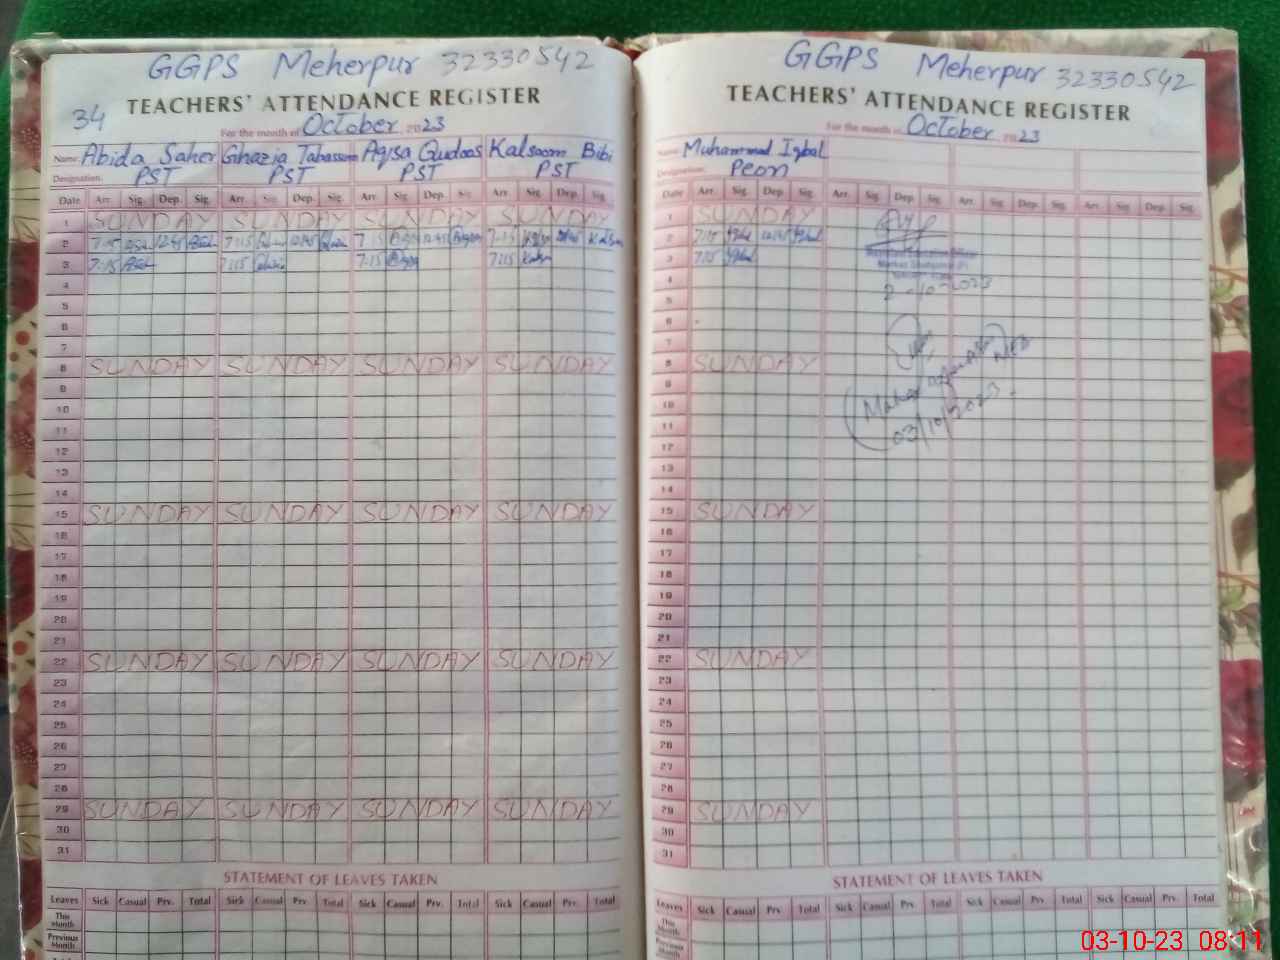 GGPS Meherpur 32330542
34 TEACHERS' ATTENDANCE REGISTER
For the month of October 2023
Name: Abida Saher Ghazia Tabassum Aqsa Qudoos Kalsoom Bibi
Designation: PST PST PST PST
Date Arr. Sig. Dep. Sig. Arr. Sig. Dep. Sig. Arr. Sig. Dep. Sig. Arr. Sig. Dep. Sig.
1 SUNDAY SUNDAY SUNDAY SUNDAY
2 7:15 12:45 7:15 12:45 7:15 12:45 7:15 12:45
3 7:15 7:15 7:15 7:15
4
5
6
7
8 SUNDAY SUNDAY SUNDAY SUNDAY
9
10
11
12
13
14
15 SUNDAY SUNDAY SUNDAY SUNDAY
16
17
18
19
20
21
22 SUNDAY SUNDAY SUNDAY SUNDAY
23
24
25
26
27
28
29 SUNDAY SUNDAY SUNDAY SUNDAY
30
31
STATEMENT OF LEAVES TAKEN
Leaves Sick Casual Prv. Total Sick Casual Prv. Total Sick Casual Prv. Total Sick Casual Prv. Total
This Month
Previous Month
Total
GGPS Meherpur 32330542
TEACHERS' ATTENDANCE REGISTER
For the month of October 2023
Name: Muhammad Iqbal
Designation: Peon
Date Arr. Sig. Dep. Sig. Arr. Sig. Dep. Sig. Arr. Sig. Dep. Sig. Arr. Sig. Dep. Sig.
1 SUNDAY
2 7:15 Iqbal 12:45 Iqbal
3 7:15 Iqbal
4
2-10-2023
5
6
7
8 SUNDAY
9
10
11
03/10/2023
12
13
14
15 SUNDAY
16
17
18
19
20
21
22 SUNDAY
23
24
25
26
27
28
29 SUNDAY
30
31
STATEMENT OF LEAVES TAKEN
Leaves Sick Casual Prv. Total Sick Casual Prv. Total Sick Casual Prv. Total Sick Casual Prv. Total
This Month
Previous Month
03-10-23 08:11